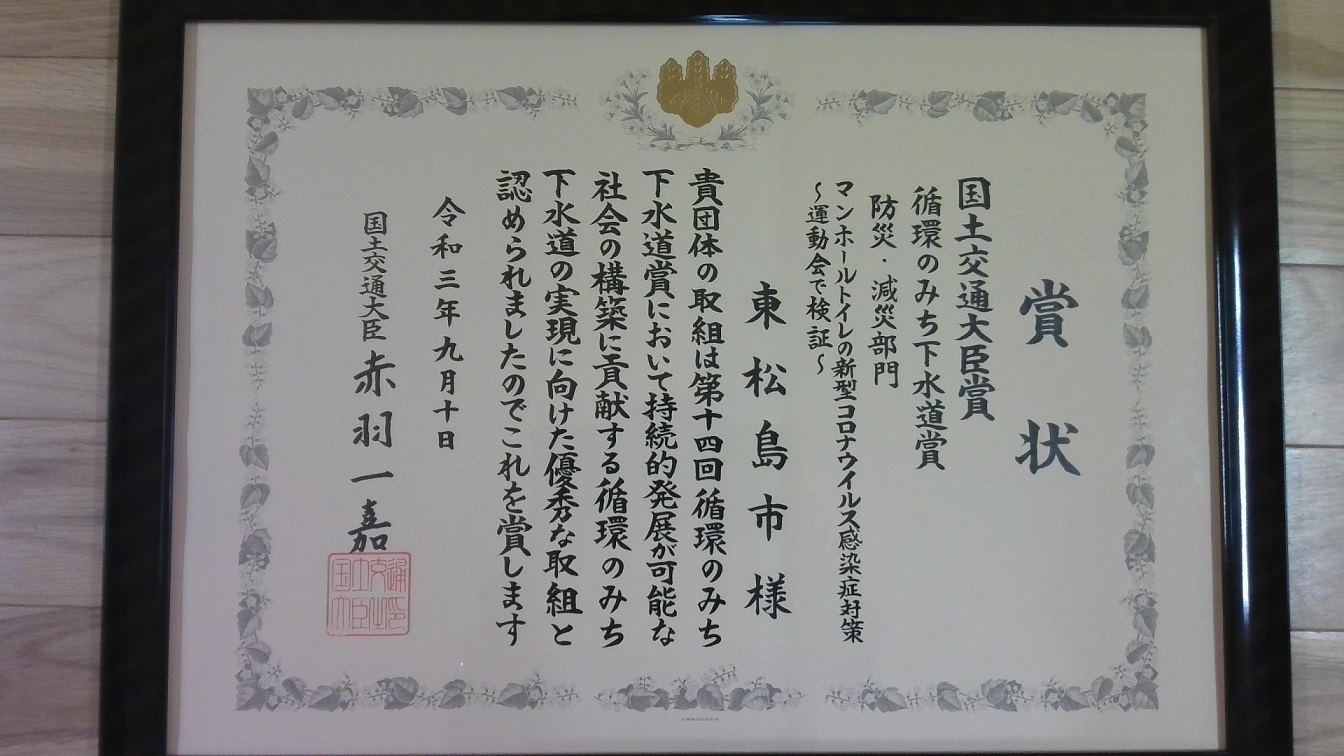 賞状
国土交通大臣賞
循環のみち下水道賞
防災・減災部門
マンホールトイレの新型コロナウイルス感染症対策
～運動会で検証～
東松島市様
貴団体の取組は第十四回循環のみち
下水道賞において持続的発展が可能な
社会の構築に貢献する循環のみち
下水道の実現に向けた優秀な取組と
認められましたのでこれを賞します
令和三年九月十日
国土交通大臣 赤羽一嘉